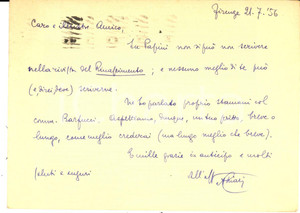 Firenze 21.7.'56
Caro e illustre Amico,
su Papini non si può non scrivere
nella rivista del Rinascimento; e nessuno meglio di te può
(e direi deve) scriverne.
Ne ho parlato proprio stamani col
comm. Barfucci. Aspettiamo, dunque, un tuo scritto, breve o
lungo, come meglio crederai (ma lungo meglio che breve).
E mille grazie in anticipo e molti
saluti e auguri